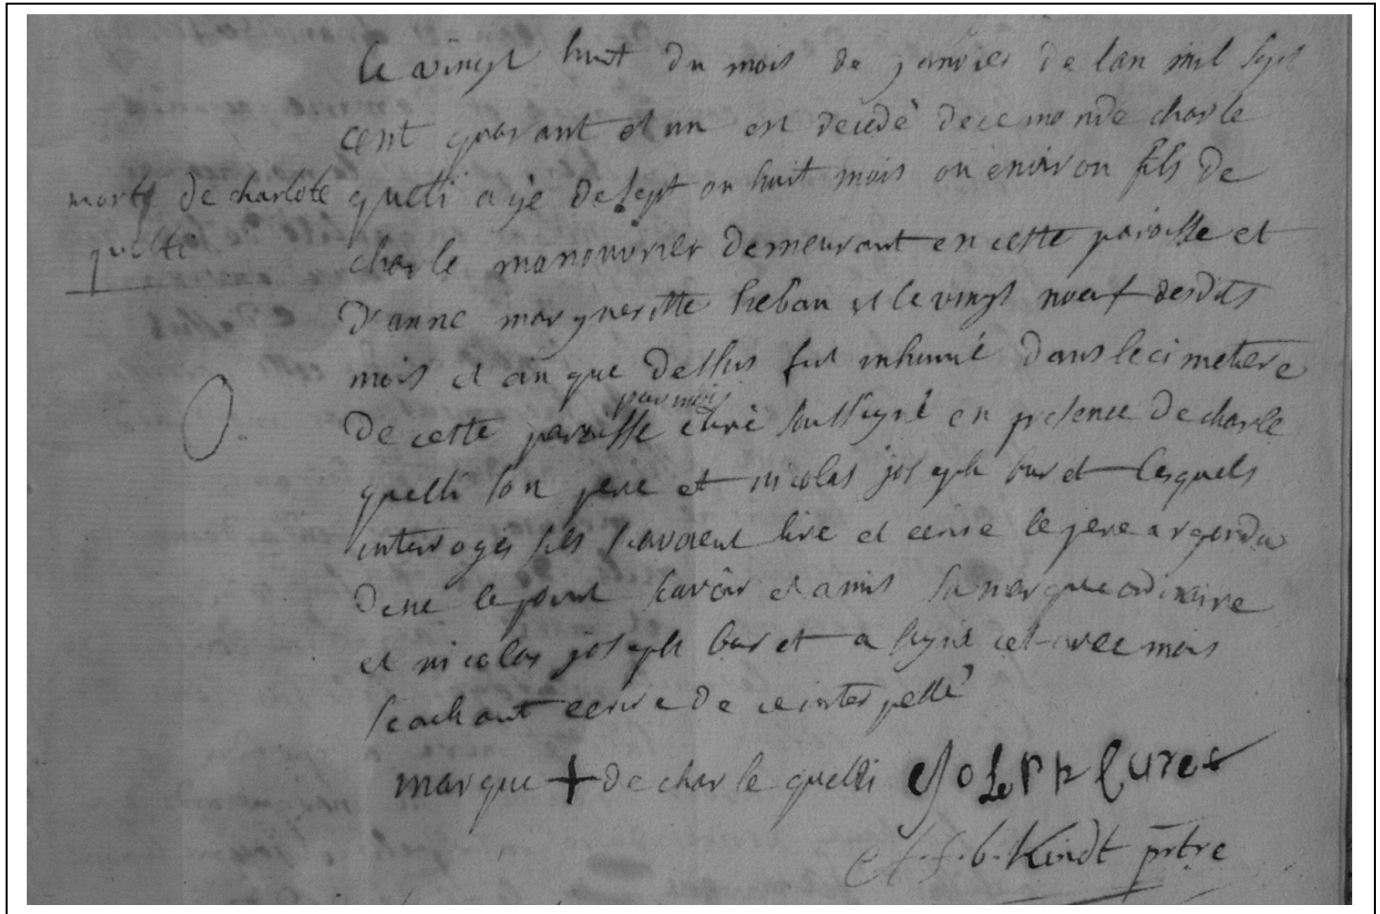 le vingt huit du mois de janvier de lan mil sept
cent quarant et un est decedè de ce monde charle
morts de charlote
quelle
quelli agè de sept ou huit mois ou environ fils de
charle manouvrier demeurant en cette paroisse et
d'anne margueritte heban et le vingt noeuf desdits
mois et an que dessus fut inhumé dans le cimetiere
par moi
de cette paroisse curè soussigné en presence de charle
quelli son pere et nicolas joseph buret lesquels
interogés sils scavoient lire et ecrire le pere a repondu
de ne le point scavoir et a mis sa marque ordinaire
et nicolas joseph buret a signé cet avec mois
scachant ecrire de ce interpellé
marque + de charle quelli Joseph buret
f.b. Kindt prtre